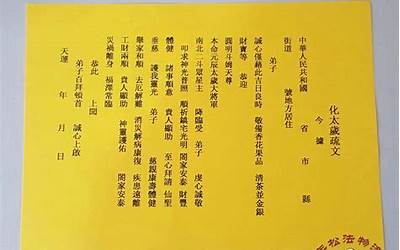 化太歲疏文
今據
中華人民共和國 省 市 縣
街道 號地方居住
弟子
誠心僅藉此吉日良時 敬備香花果品 清茶並金銀
財寶等 恭迎
圓明斗姆天尊
本命元辰太歲大將軍
南北二斗眾星主 降臨受 弟子 虔心誠敬
叩求神光普照 順祈鎮宅光明 閤家安泰 財豐
體健 諸事順意 貴人顯助 至心拜請 仙聖
垂慈 護我靈光 弟子 慈親康壽體健
舉家和順 去厄解難 消災解病康復 疾患遠離
工財兩順 貴人顯助 神靈護佑 閤家安泰
災禍離身 福澤常臨
恭此 上聞
弟子百拜頓首 誠心上啟
天運 年 月 日
松法物